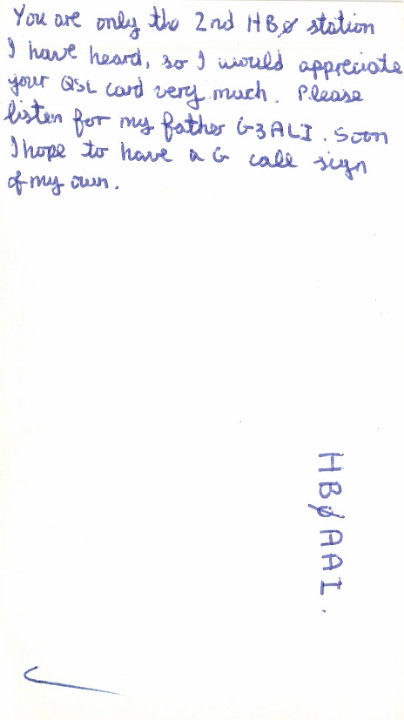 You are only the 2nd HBØ station
I have heard, so I would appreciate
your QSL card very much. Please
listen for my father G3ALI. Soon
I hope to have a G call sign
of my own.
HBØAAI.